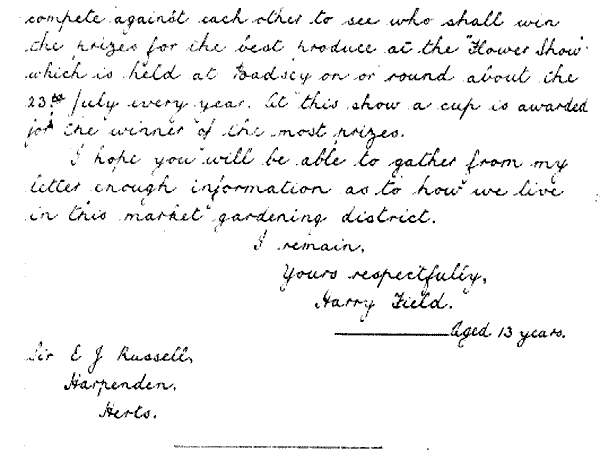 compete against each other to see who shall win
the prizes for the best produce at the "Flower Show"
which is held at Badsey on or round about the
23rd July every year. At this show a cup is awarded
for the winner of the most prizes.
I hope you will be able to gather from my
letter enough information as to how we live
in this market gardening district.
I remain,
Yours respectfully,
Harry Field.
Aged 13 years.
Sir E J Russell,
Harpenden,
Herts.